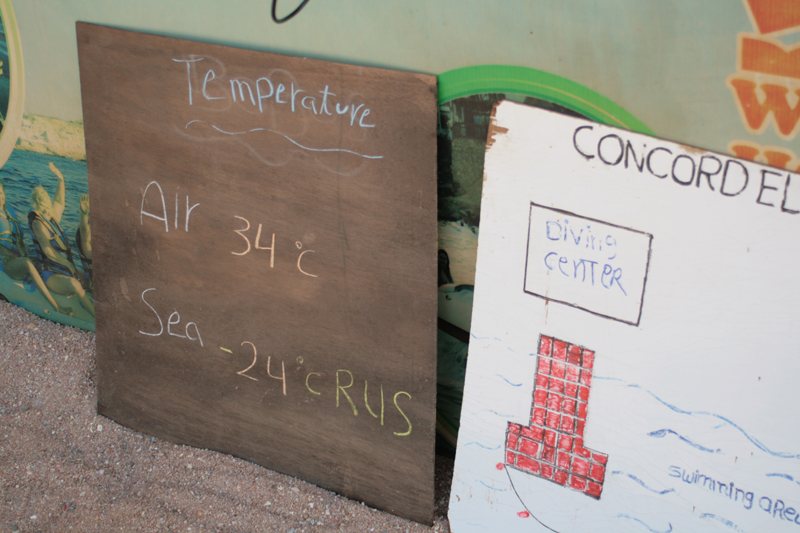 Temperature
Air 34°C
Sea -24°C RUS
CONCORD EL
Diving
CENTER
swimming area